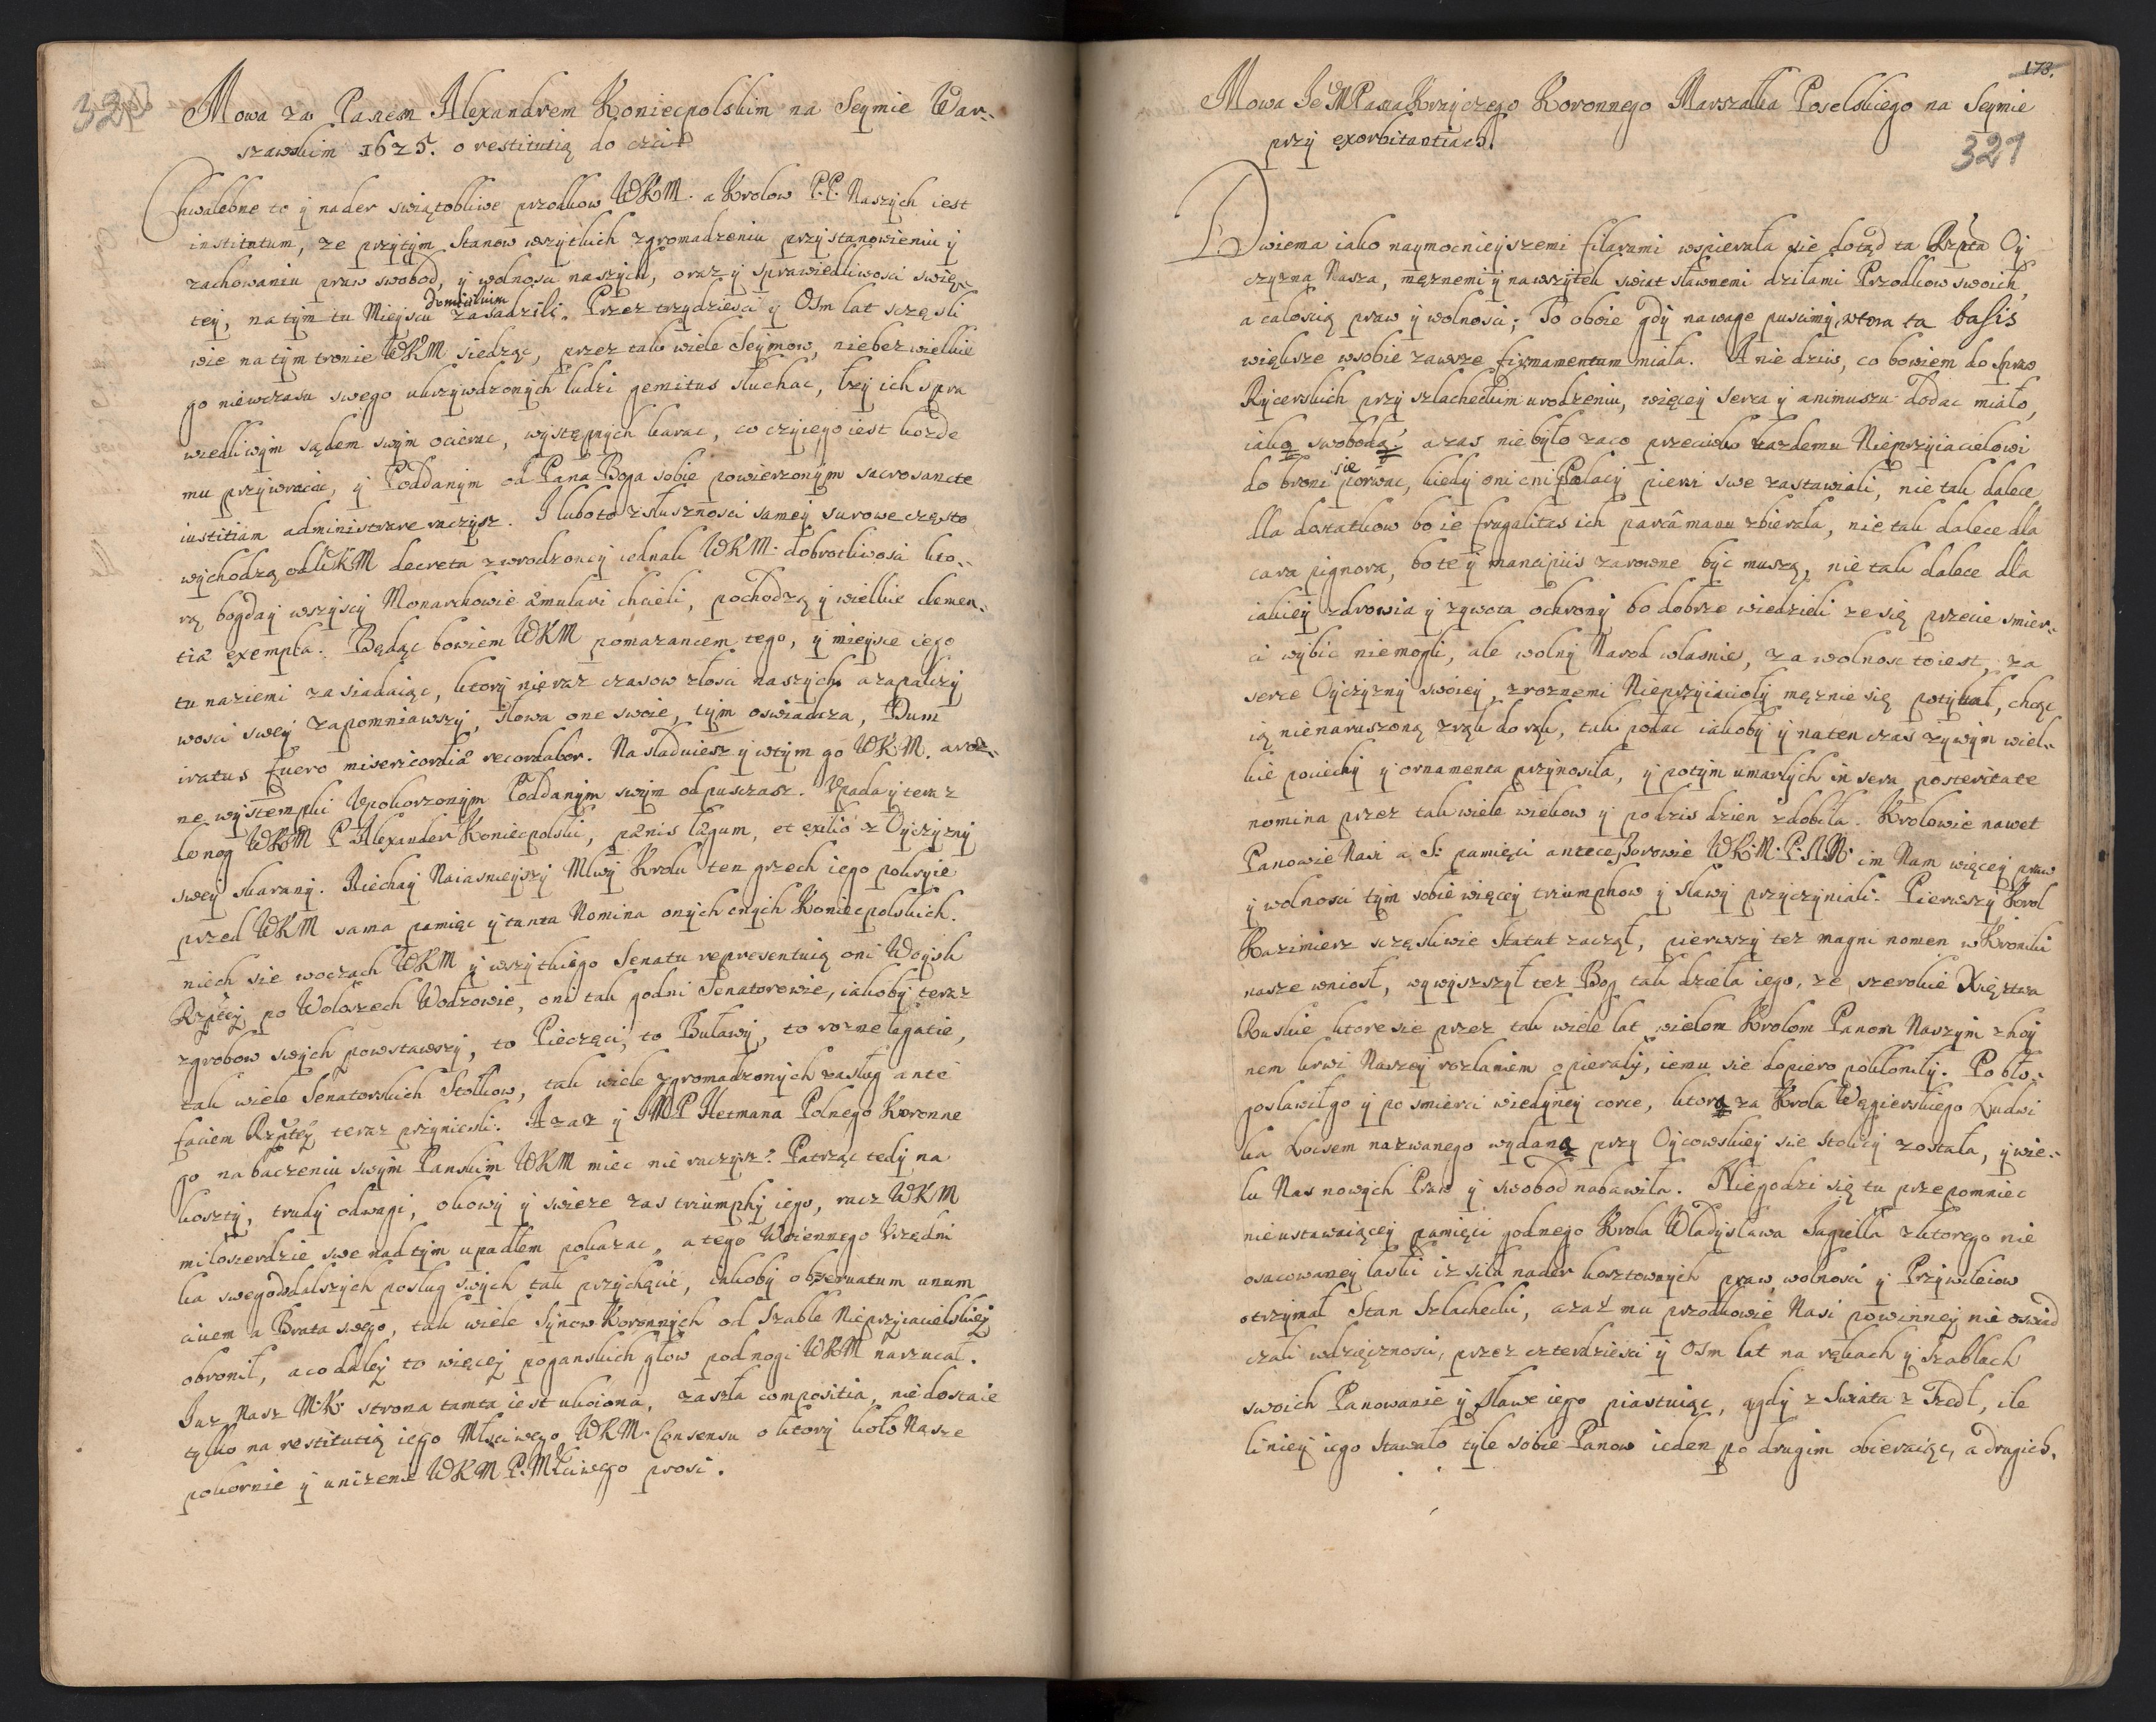 Mowa za Panem Alexandrem Koniecpolskim na Seymie War-
szawskim 1625. o restitutią do czci
Chwalebne to ÿ nader swiątobliwe przodkow WKM. a Krolow P.P. Naszych iest
institutum, ze przÿtÿm Stanow wszÿtkich zgromadzeniu przÿ stanowieniu ÿ
zachowaniu praw swobod, ÿ wolnosci naszÿch, oraz ÿ sprawiedliwosci swię-
teÿ, na tÿm tu Mieÿscu domicilium zasadzili. Przez trzÿdziesci ÿ Osm lat sczęsli
wie na tÿm tronie WKM siedząc, przez tak wiele Seÿmow, nie bez wielkie
go niewczasu swego ukrzÿwdzonÿch ludzi gemitus słuchac, łzÿ ich spra
wiedliwÿm sądem swÿm ocierac, wÿstępnÿch karac, co czÿiego iest kozde
mu przÿwracac, ÿ Poddanÿm od Pana Boga sobie powierzonÿm sacrosancte
iustitiam administrare raczÿsz. I lubo to z słusznosci sameÿ surowe często
wÿchodzą od WKM decreta z wrodzoneÿ iednak WKM. dobrotliwosci kto-
rą bogdaÿ wszÿscÿ Monarchowie æmulari chcieli, pochodzą ÿ wielkie clemen-
tiæ exempla. Będąc bowiem WKM pomazancem tego, ÿ mieÿsce iego
tu na ziemi zasiadaiąc, ktorÿ nieraz czasow złosci naszÿch a zapalczÿ
wosci sweÿ zapomniawszÿ, słowa one swoie, tÿm oswiadcza, Dum
iratus fuero misericordiæ recordabor. Nasladuiesz ÿ wtÿm go WKM. a roz-
ne wÿstempki Upokorzonÿm Poddanÿm swÿm odpusczasz. Upada ÿ teraz
do nog WKM P. Alexander Koniecpolski, pœnis legum, et exilio z Oÿczÿznÿ
sweÿ skaranÿ. Niechaÿ Naiasnieÿszÿ Mlwÿ Krolu ten grzech iego pokrÿie
przed WKM sama pamięc ÿ tanta Nomina onÿch cnÿch Koniecpolskich.
niech sie woczach WKM ÿ wszÿtkiego Senatu representuią oni Woÿsk
Rzpteÿ po Wołoszech Wodzowie, oni tak godni Senatorowie, iakobÿ teraz
z grobow swÿch powstawszÿ, to Pieczęci, to Buławÿ, to rozne legatie,
tak wiele Senatorskich Stołkow, tak wiele zgromadzonÿch zasług ante
faciem Rzpteÿ teraz przÿniesli. Azaz ÿ JMP Hetmana Polnego Koronne
go na baczeniu swÿm Panskim WKM miec nie raczÿsz? Patrząc tedÿ na
kosztÿ, trudÿ odwagi, okowÿ ÿ swieze zas triumphÿ iego, racz WKM
miłosierdzie swe nad tÿm upadłem pokazac, a tego Woiennego Urzędni
ka swego do dalszÿch posług swÿch tak przÿchęcic, iakobÿ obseruatum unum
ciuem a Brata swego, tak wiele Sÿnow Koronnÿch od Szable Nieprzÿiacielskieÿ
obronił, a co daleÿ to więceÿ poganskich głow pod nogi WKM narzucał.
Iuz Nasz M.K. strona tamta iest ukoiona, zaszła compositia, nie dostaie
tÿlko na restitutią iego Młsciwego WKM. Consensu o ktorÿ koło Nasze
pokornie ÿ unizenie WKM P. Młciwego prosi.
173.
Mowa Je° M Pana Krzÿczego Koronnego Marszałka Poselskiego na Seÿmie
przÿ exorbitantiach.
321
Dwiema iako naÿmocnieÿszemi filarami wspierała sie dotąd ta Rzpta Oÿ
czÿzna Nasza, męznemi ÿ na wszÿtek swiat sławnemi dziłami Przodkow swoich,
a całoscią praw ÿ wolnosci; To oboie gdÿ na wage puscimÿ, wtora ta basis
większe w sobie zawsze firmamentum miała. A nie dziw, co bowiem do spraw
Rÿcerskich przÿ szlacheckim urodzeniu, więceÿ serca ÿ animuszu dodac miało,
iako swoboda? azas nie bÿło zaco przeciwko kazdemu Nieprzÿiacielowi
do broni sie porwac, kiedÿ oni cni Polacÿ piersi swe zastawiali, nie tak dalece
dla dostatkow bo ie frugalitas ich parcâ manu zbierała, nie tak dalece dla
cara pignora, bo te ÿ mancipiis zarowne bÿc muszą, nie tak dalece dla
iakieÿ zdrowia ÿ zÿwota ochronÿ bo dobrze wiedzieli ze się przecie smier-
ci wÿbic niemogli, ale wolnÿ Narod własnie, za wolnosc to iest, za
serce Oÿczÿznÿ swoieÿ, z roznemi Nieprzÿiaciołÿ męznie się potÿkał, chcąc
ią nienaruszoną z rąk do rąk, tak podac iakobÿ ÿ na ten czas zÿwÿm wiel-
kie pociechÿ ÿ ornamenta przÿnosiła, ÿ potÿm umarłÿch in sera posteritate
nomina przez tak wiele wiekow ÿ po dzis dzien zdobiła. Krolowie nawet
Panowie Nasi a S: pamięci antecessorowie WK.M. P.N.M. im Nam więceÿ praw
ÿ wolnosci tÿm sobie więceÿ triumphow ÿ sławÿ przÿczÿniali. Pierwszÿ Krol
Kazimierz sczęsliwie Statut zaczął, pierwszÿ tez magni nomen w Kroniki
nasze wniosł, wÿwÿzszÿł tez Bog tak dzieła iego, ze szerokie Xięztwa
Ruskie ktore sie przez tak wiele lat wielom Krolom Panom Naszÿm z hoÿ
nem krwi Naszeÿ rozlaniem opierałÿ, iemu sie dopiero pokłoniłÿ. Pobło-
gosławił go ÿ po smierci w iedÿneÿ corce, ktora za Krola Węgierskiego Ludwi
ka Loisem nazwanego wydana przy Oÿcowskieÿ sie stolicÿ została, ÿ wie-
lu Nas nowÿch Praw ÿ swobod nabawiła. Niegodzi się tu przepomniec
nieustawaiąceÿ pamięci godnego Krola Władÿsława Jagiełła z ktorego nie
osacowaneÿ łaski iz siła nader kosztownÿch praw, wolnosci ÿ Przÿwileiow
otrzÿmał Stan Szlachecki, azaz mu przodkowie Nasi powinneÿ nie oswiad
czali wdzięcznosci, przez czterdziesci ÿ Osm lat na rękach ÿ szablach
swoich Panowanie ÿ sławe iego piastuiąc, a gdÿ z Swiata z Szedł, ile
linieÿ iego stawało tÿle sobie Panow ieden po drugim obieraiąc, a drugich.